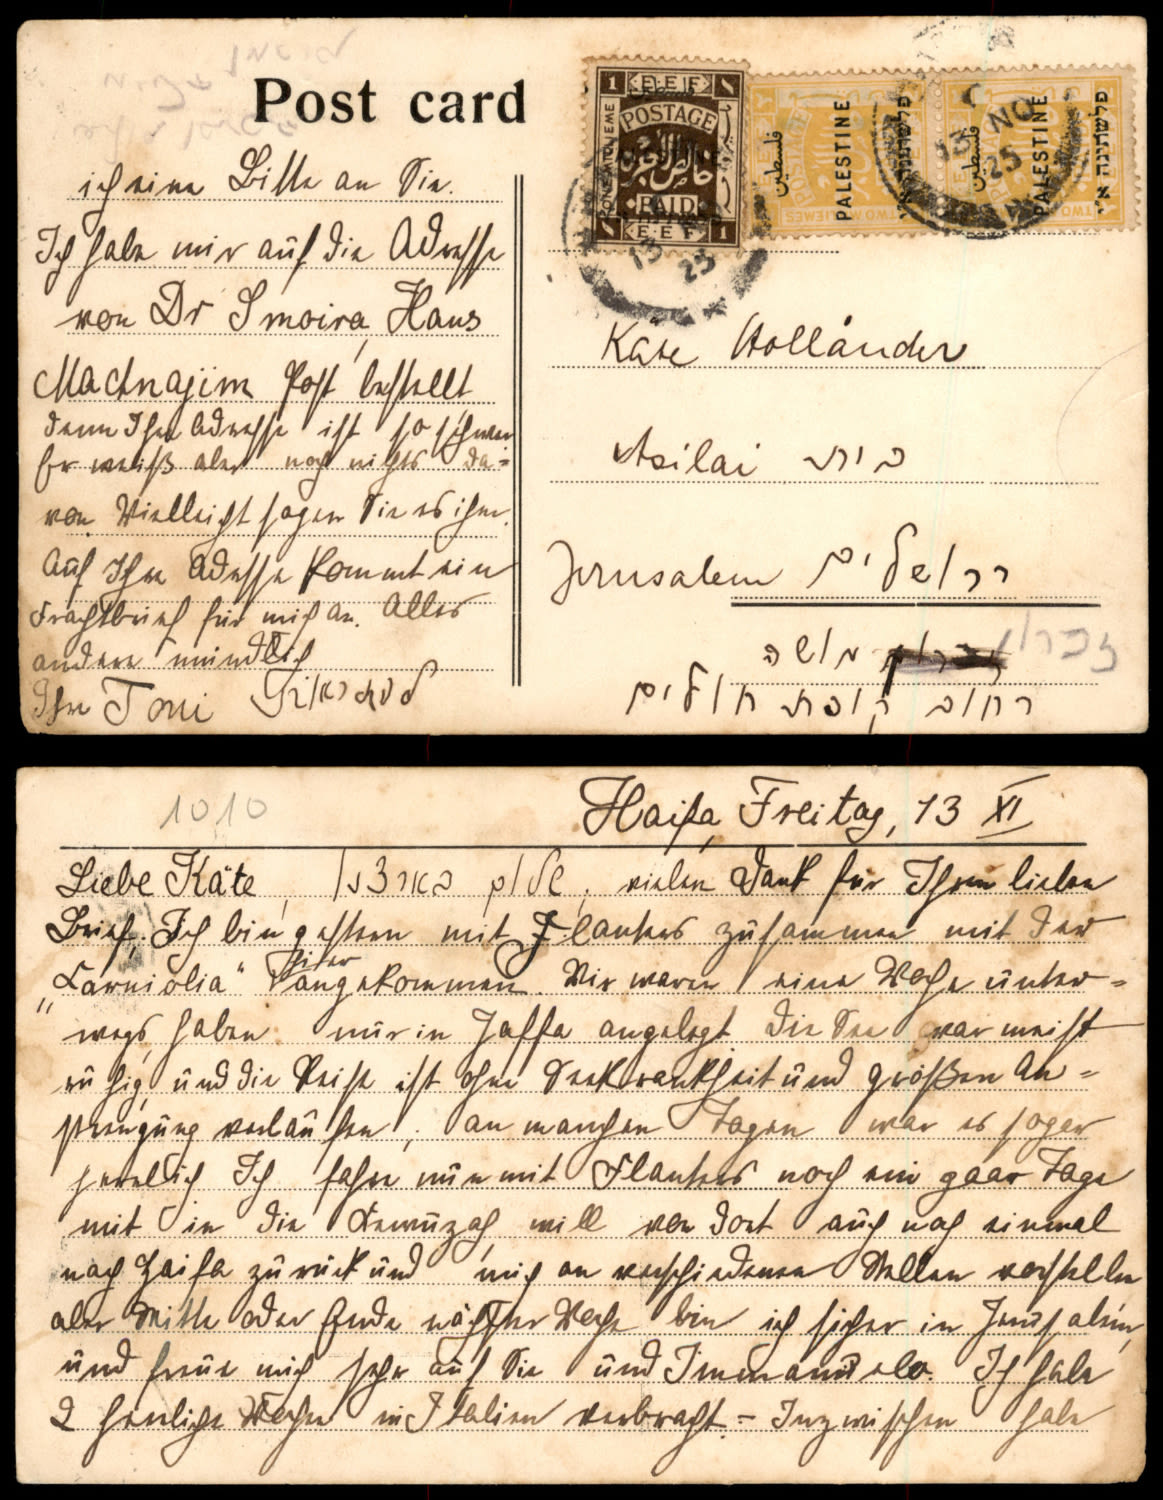 Post card
ich eine Bitte an Sie.
Ich habe mir auf die Adresse
von Dr Smoira, Haus
Machnajim Post bestellt
denn Ihre Adresse ist so schwer
Er weiß aber noch nichts da=
von Vielleicht sagen Sie es ihm.
Auf Ihre Adresse kommt ein
Frachtbrief für mich an. Alles
andere mündlich
Ihre Toni
1 E.E.F. 1
POSTAGE
PAID
E.E.F 1
13
23
فلسطين
PALESTINE
פלשתינה א״י
فلسطين
PALESTINE
פלשתינה א״י
13 NO
25
Käte Holländer
Asilai בית
Jerusalem ירושלים
זכרון משה
רחוב חולים
1010
Haifa, Freitag, 13 XI
Liebe Käte, שלום, vielen Dank für Ihren lieben
Brief. Ich bin gestern mit Flanters zusammen mit der
„Carniolia" hier angekommen. Wir waren eine Woche unter=
wegs, haben nur in Jaffa angelegt. Die See war meist
ruhig und die Reise ist ohne Seekrankheit und größen An=
strengung verlaufen, an manchen Tagen war es sogar
herrlich Ich fahre nun mit Flanters noch ein paar Tage
mit in die Kewuzah, will von dort auch noch einmal
nach Haifa zurück und mich an verschiedenen Stellen vorstellen,
aber Mitte oder Ende nächster Woche bin ich sicher in Jerusalem,
und freue mich sehr auf Sie und Immanuel. Ich habe
2 herrliche Wochen in Italien verbracht. – Inzwischen habe